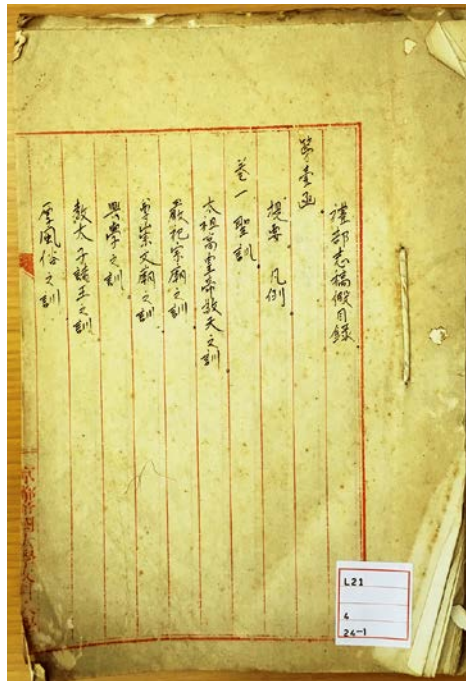 禮部志稿假目録
第壹函
提要 凡例
卷一 聖訓
太祖高皇帝敬天之訓
嚴祀宗廟之訓
尊崇文廟之訓
興學之訓
教太子諸王之訓
厚風俗之訓
京都帝國大學
L21
4
24-1